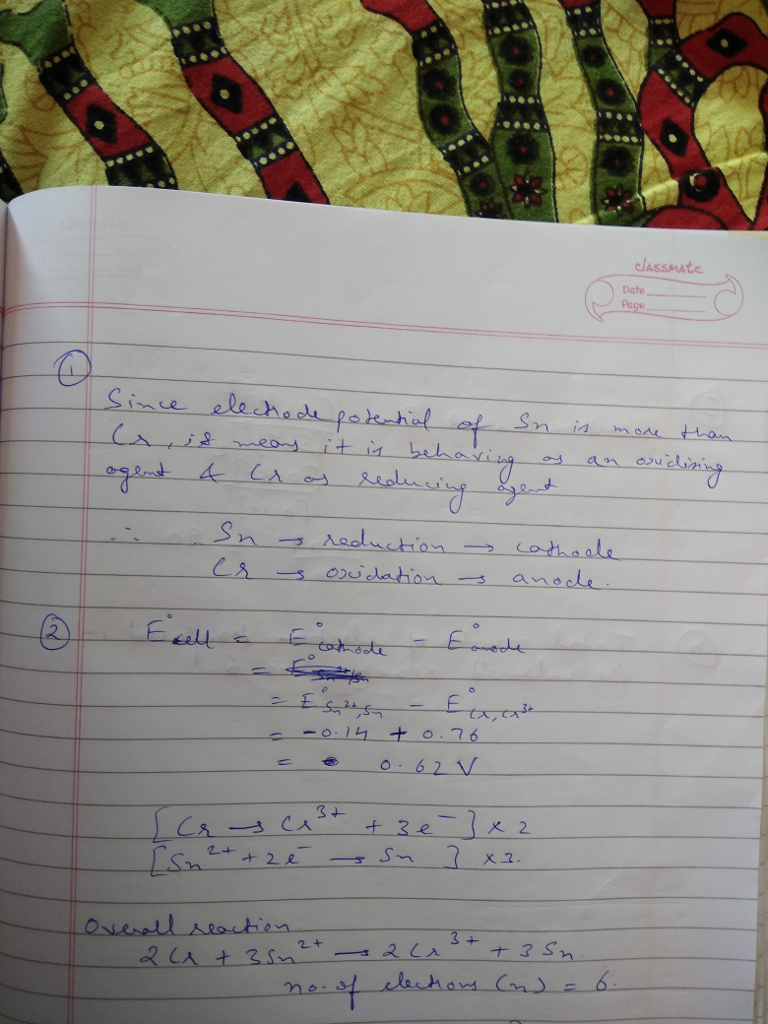 classmate
Date
Page
①
Since electrode potential of Sn is more than
Cr, it means it is behaving as an oxidising
agent & Cr as reducing agent
∴ Sn → reduction → cathode
Cr → oxidation → anode.
② E°cell = E°cathode - E°anode
= E°Sn²⁺/Sn
= E°Sn²⁺,Sn - E°Cr,Cr³⁺
= -0.14 + 0.76
= 0.62 V
[Cr → Cr³⁺ + 3e⁻] × 2
[Sn²⁺ + 2e⁻ → Sn ] × 3.
Overall reaction
2Cr + 3Sn²⁺ → 2Cr³⁺ + 3Sn.
no. of electrons (n) = 6.